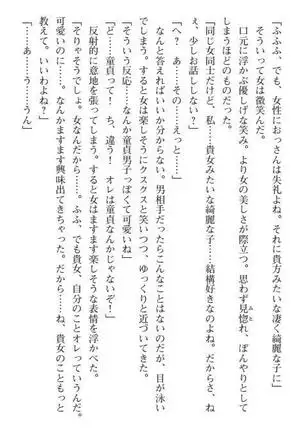 「ふふふ、でも、女性におっさんは失礼よね。それに貴方みたいな凄く綺麗な子に」
そういって女は微笑んだ。
口元に浮かぶ優しげな笑み。より女の美しさが際立つ。思わず見惚れ、ぼんやりとして
しまうほどのものだった。
「同じ女同士だけど、私……貴女みたいな綺麗な子……結構好きなのよね。だからさ、ね
ぇ、少しお話ししない？」
「へ？　あ……その……えっと……」
なんと答えればいいか分からない。男相手だったらこんなことはないのだが、目が泳い
でしまう。すると女は楽しそうにクスクスと笑いつつ、ゆっくりと近づいてきた。
「そういう反応……なんか童貞男子っぽくて可愛いね」
「ど……童貞って！　ち、違う！　オレは童貞なんかじゃないぞ！」
反射的に意地を張ってしまう。すると女はますます楽しそうな表情を浮かべた。
「そりゃそうでしょ。女なんだから。ふふ、でも貴女、自分のことオレっていうんだ。
可愛いのに……。なんかますます興味出てきちゃった。だから……ね、貴女のこともっと
教えて。いいわよね？」
「……あ……う……うん」